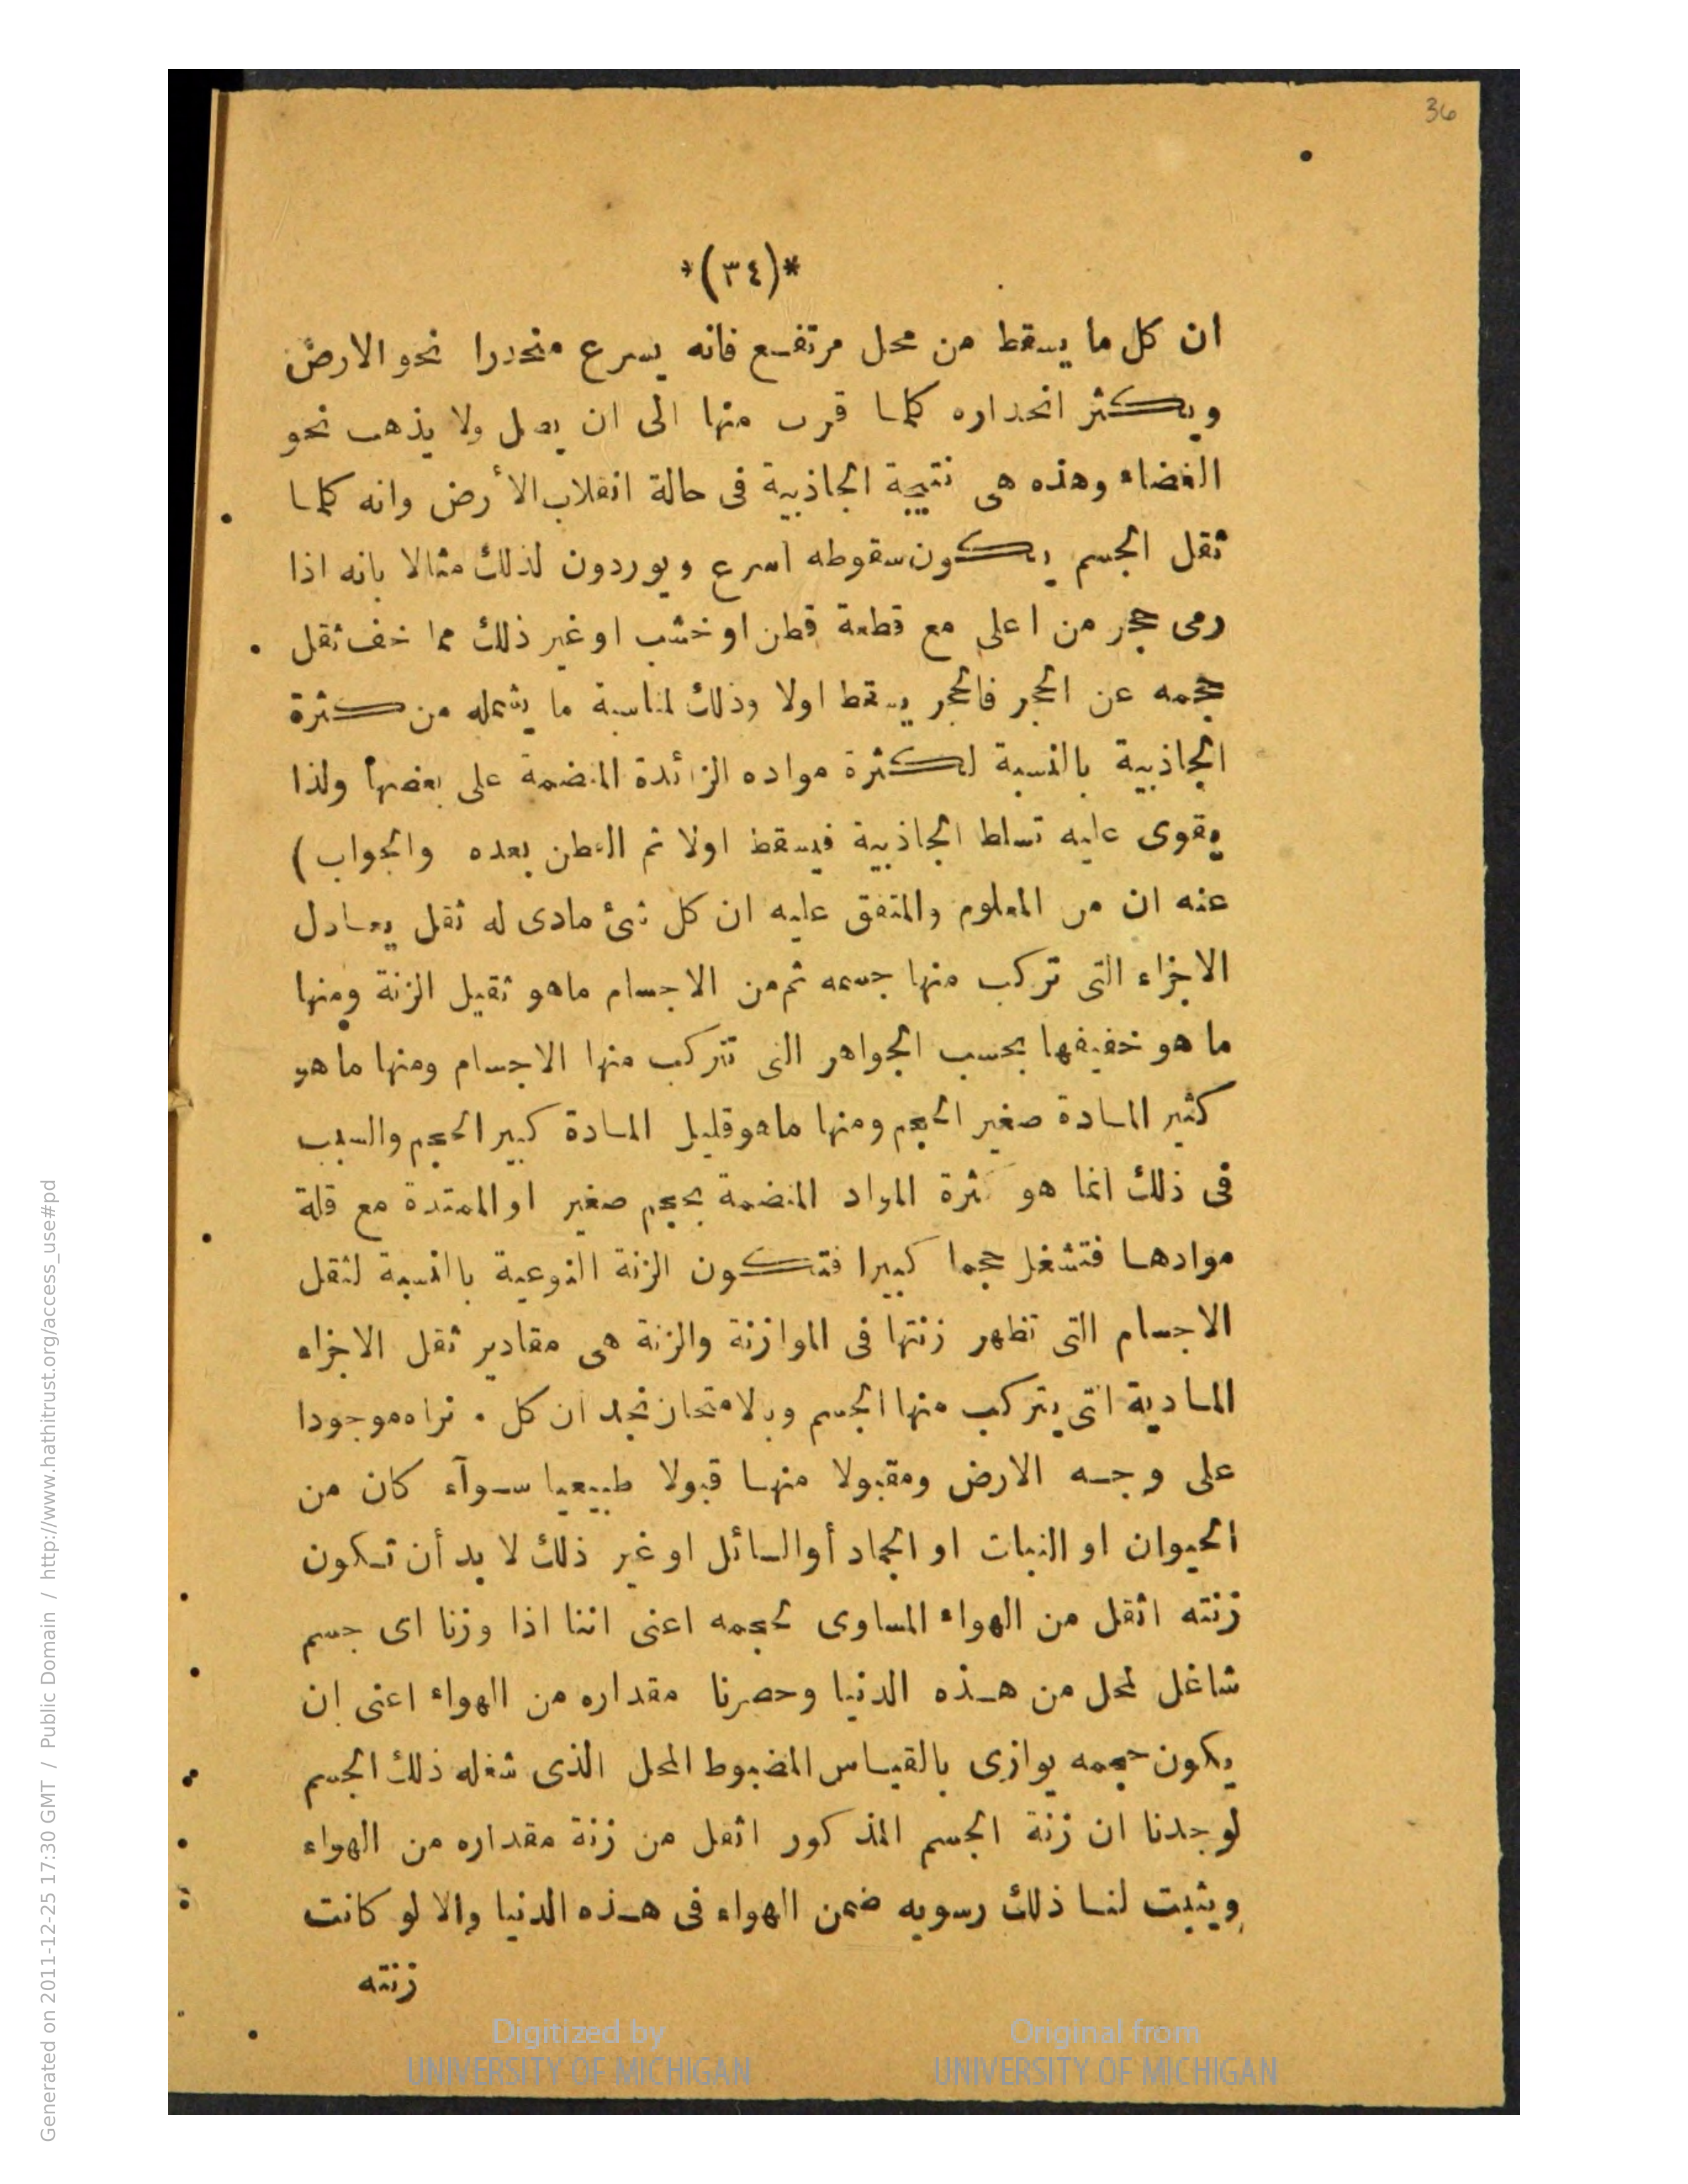 36
*(٣٤)*
ان كل ما يسقط من محل مرتفع فانه يسرع منحدرا نحو الارض
ويكثر انحداره كلما قرب منها الى ان يصل ولا يذهب نحو
الفضاء وهذه هى نتيجة الجاذبية فى حالة انقلاب الأرض وانه كلما
ثقل الجسم يكون سقوطه اسرع ويوردون لذلك مثالا بانه اذا
رمى حجر من اعلى مع قطعة قطن او خشب او غير ذلك مما خف ثقل
حجمه عن الحجر فالحجر يسقط اولا وذلك لمناسبة ما يشمله من كثرة
الجاذبية بالنسبة لكثرة مواده الزائدة المنضمة على بعضها ولذا
يقوى عليه تسلط الجاذبية فيسقط اولا ثم القطن بعده والجواب)
عنه ان من المعلوم والمتفق عليه ان كل شئ مادى له ثقل يعادل
الاجزاء التى تركب منها جسمه ثم من الاجسام ماهو ثقيل الزنة ومنها
ما هو خفيفها بحسب الجواهر التى تتركب منها الاجسام ومنها ما هو
كثير المادة صغير الحجم ومنها ماهو قليل المادة كبير الحجم والسبب
فى ذلك انما هو كثرة المواد المنضمة بحجم صغير او الممتدة مع قلة
موادها فتشغل حجما كبيرا فتكون الزنة النوعية بالنسبة لثقل
الاجسام التى تظهر زنتها فى الموازنة والزنة هى مقادير ثقل الاجزاء
المادية التى يتركب منها الجسم وبالامتحان نجد ان كل نراه موجودا
على وجه الارض ومقبولا منها قبولا طبيعيا سوآء كان من
الحيوان او النبات او الجماد أو السائل او غير ذلك لا بد أن تكون
زنته اثقل من الهواء المساوى لحجمه اعنى اننا اذا وزنا اى جسم
شاغل لمحل من هذه الدنيا وحصرنا مقداره من الهواء اعنى ان
يكون حجمه يوازى بالقياس المضبوط المحل الذى شغله ذلك الجسم
لوجدنا ان زنة الجسم المذكور اثقل من زنة مقداره من الهواء
ويثبت لنا ذلك رسوبه ضمن الهواء فى هذه الدنيا والا لو كانت
زنته
Digitized by
UNIVERSITY OF MICHIGAN
Original from
UNIVERSITY OF MICHIGAN
Generated on 2011-12-25 17:30 GMT / Public Domain / http://www.hathitrust.org/access_use#pd